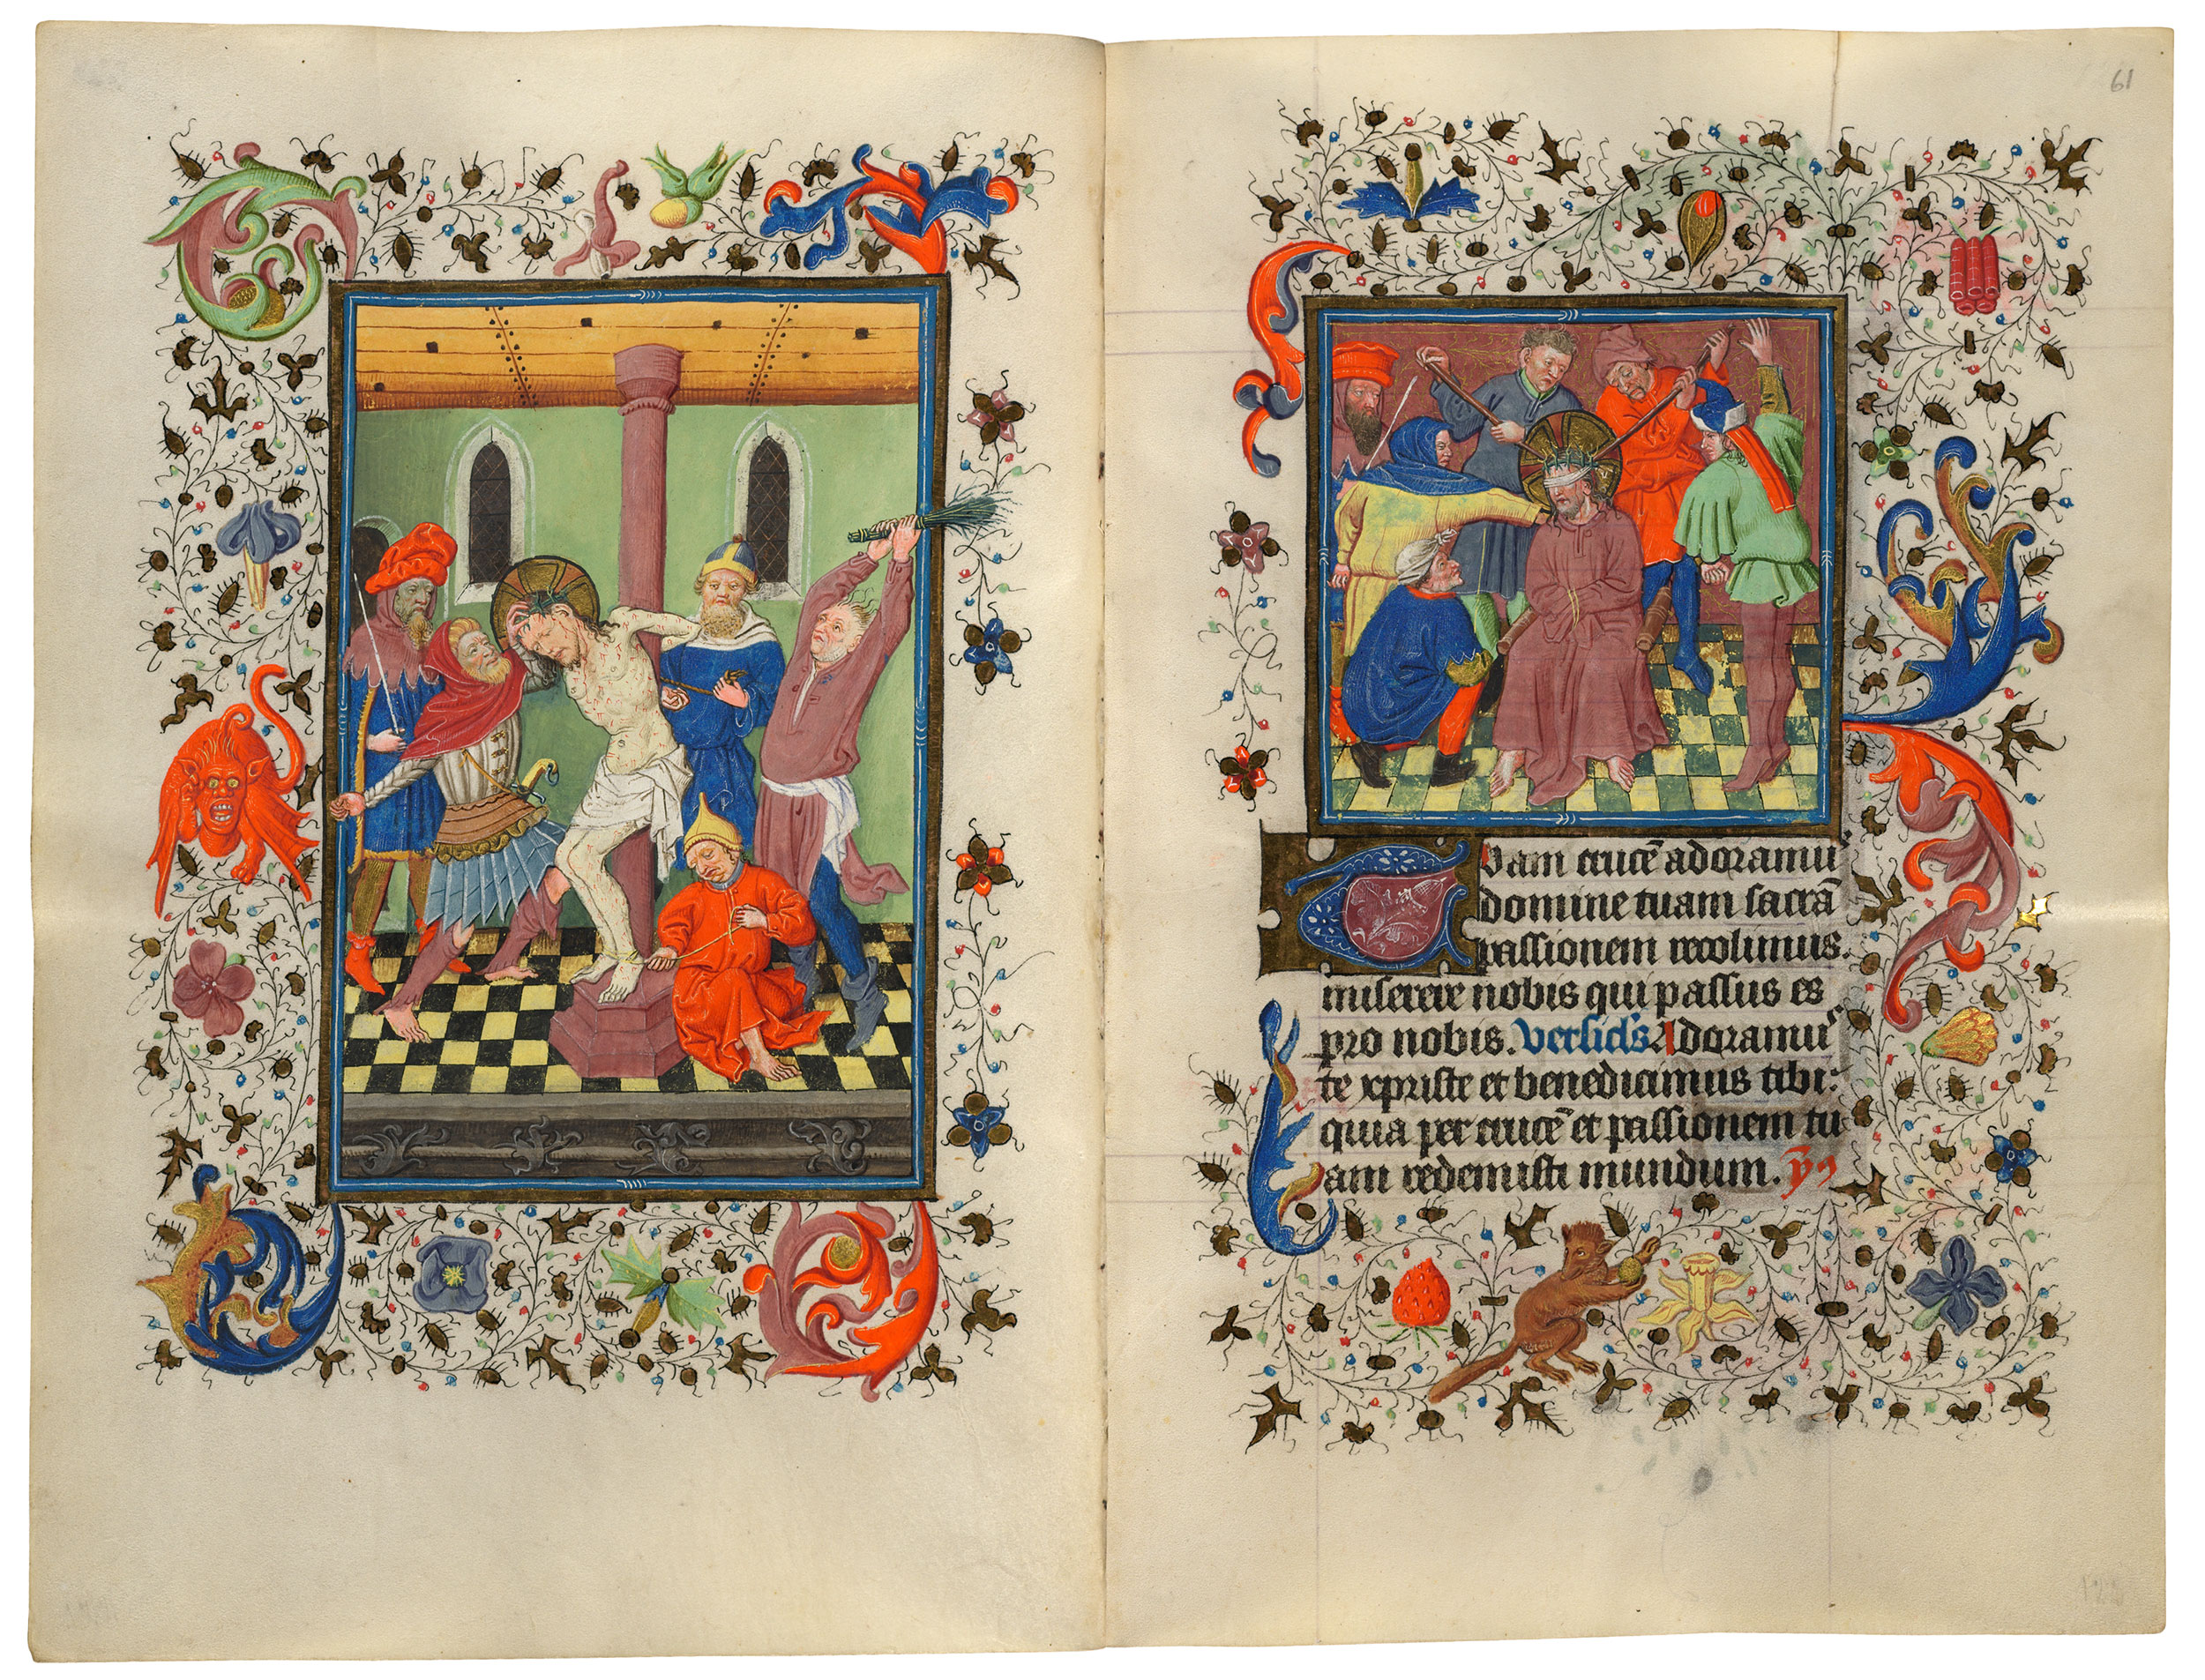 61
Tuam crucē adoramus
domine tuam sacrā
passionem recolimus.
miserere nobis qui passus es
pro nobis. Versicl's Adoramus
te xpriste et benedicimus tibi:
quia per crucē et passionem tu
am redemisti mundum.